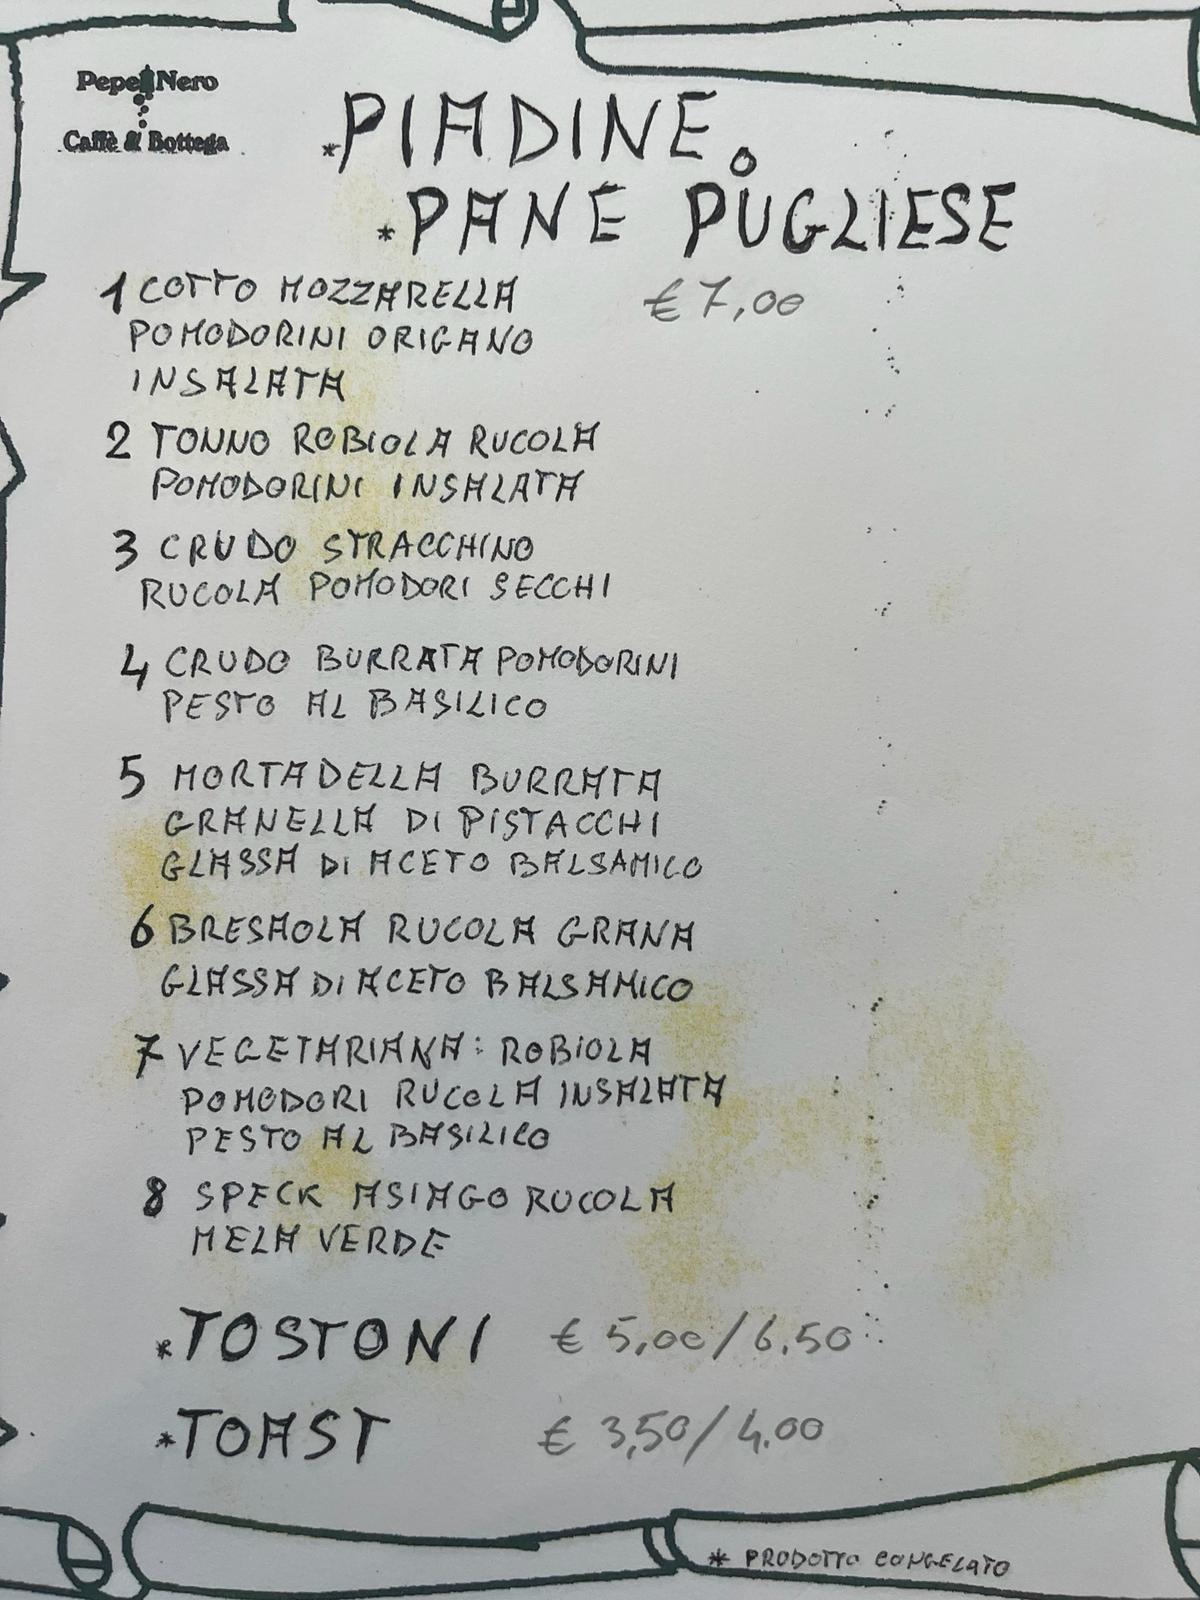 Pepe Nero
Caffè & Bottega
*PIADINE o
*PANE PUGLIESE
1 COTTO MOZZARELLA € 7,00
POMODORINI ORIGANO
INSALATA
2 TONNO ROBIOLA RUCOLA
POMODORINI INSALATA
3 CRUDO STRACCHINO
RUCOLA POMODORI SECCHI
4 CRUDO BURRATA POMODORINI
PESTO AL BASILICO
5 MORTADELLA BURRATA
GRANELLA DI PISTACCHI
GLASSA DI ACETO BALSAMICO
6 BRESAOLA RUCOLA GRANA
GLASSA DI ACETO BALSAMICO
7 VEGETARIANA: ROBIOLA
POMODORI RUCOLA INSALATA
PESTO AL BASILICO
8 SPECK ASIAGO RUCOLA
MELA VERDE
*TOSTONI € 5,00/6.50
*TOAST € 3,50/4.00
* PRODOTTO CONGELATO